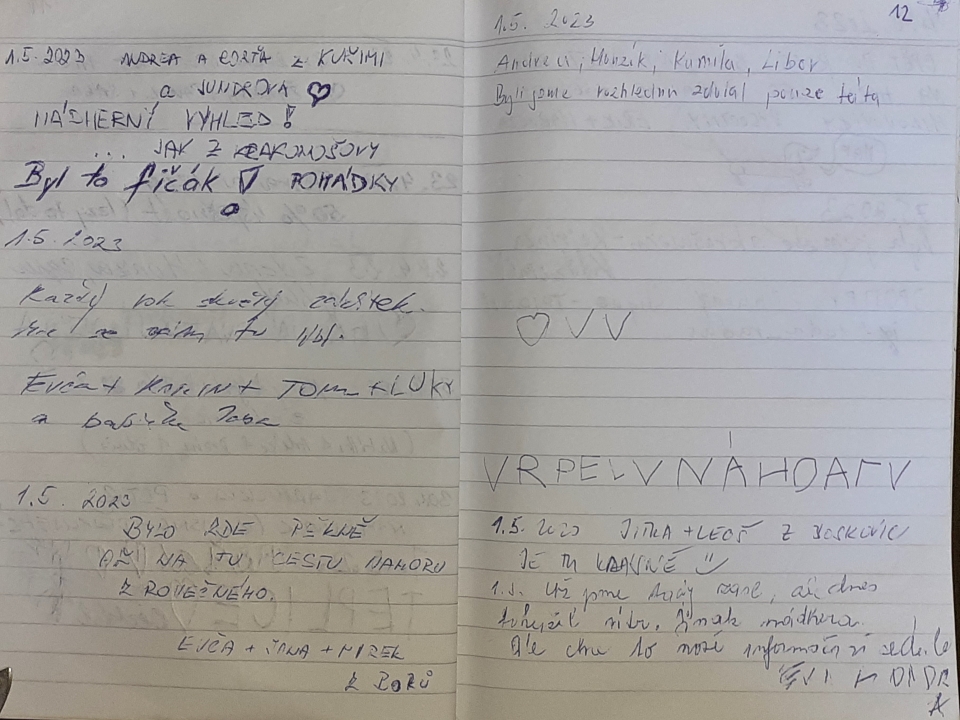 1.5. 2023 ANDREA A z KUŘIMI
A JUNDROVA ♡
NÁDHERNÝ VÝHLED!
... JAK Z KRAKONOŠOVY
Byl to fičák POHÁDKY
1.5. 2023
Každý rok skvělý zážitek.
se tu
Evča + + TOM + LUKY
a babička
1.5. 2023
BYLO ZDE PĚKNĚ
AŽ NA TU CESTU NAHORU
Z ROVEČNÉHO.
EVČA + JANA + MIREK
Z BORŮ
12
1.5. 2023
Andrea, Honzík, Kamila, Libor
Byli jsme rozhlednu zdolal pouze táta
♡ V V
1.5. 2023 JITKA + LEOŠ Z BOSKOVIC
JE TU KRÁSNĚ
1.5. Už jsme tady, až dnes
Jinak nádhera.
Ale chce to nové informační cedule